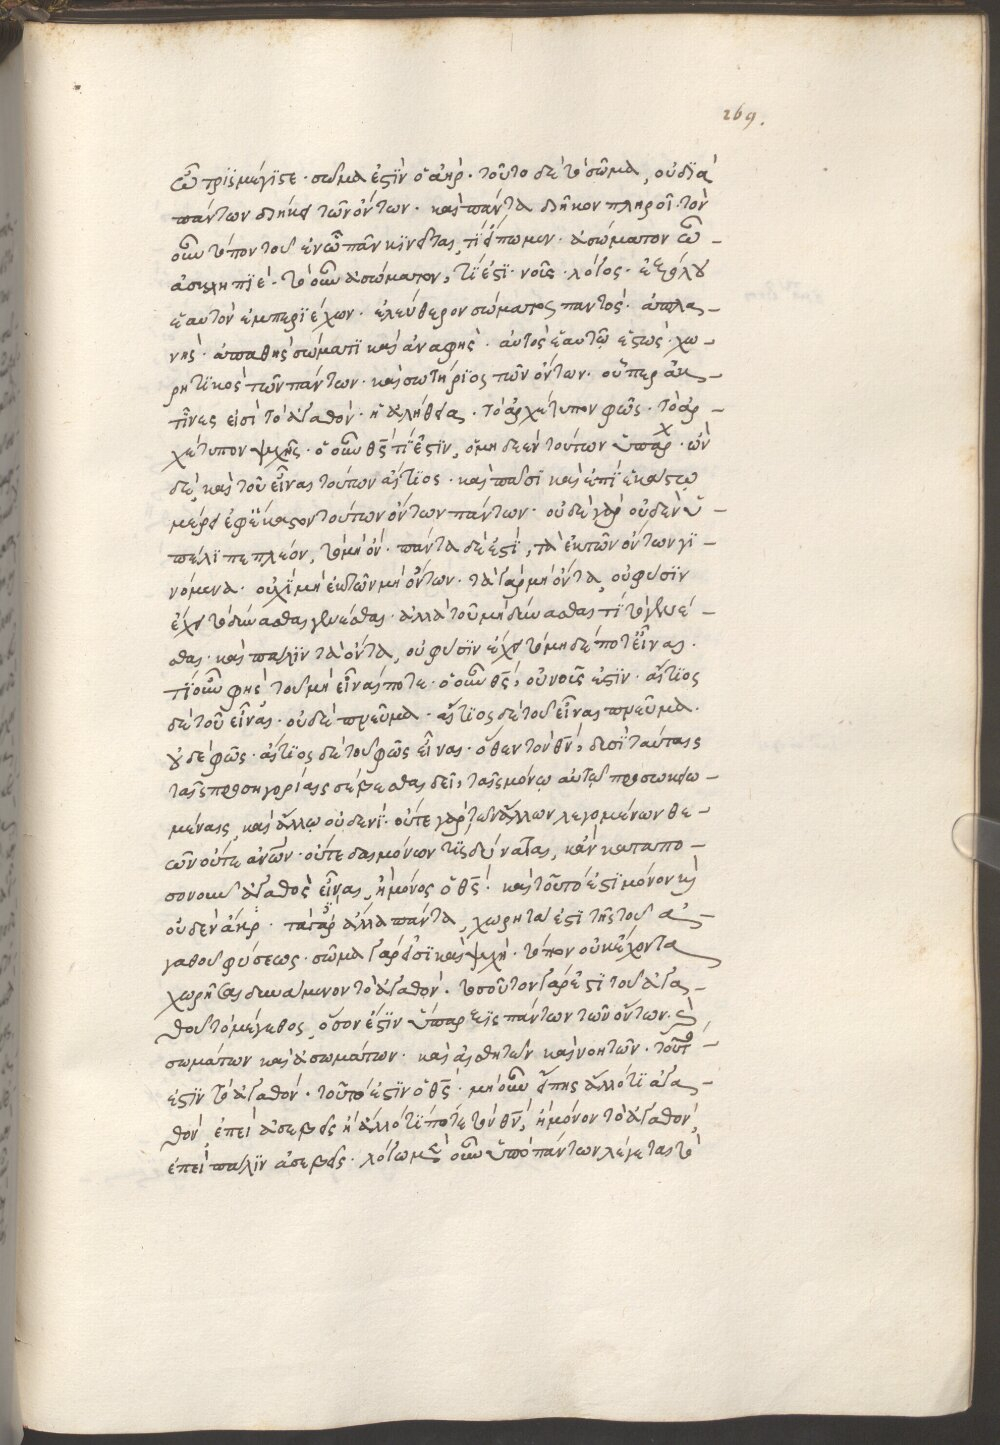 269.
ὦ τρισμέγιστε· σῶμα ἐστὶν ὁ ἀήρ· τοῦτο δὲ τὸ σῶμα, οὐ διὰ
πάντων διήκει τῶν ὄντων· καὶ πάντα διῆκον πληροῖ· τὸν
οὖν τόπον τοῦ ἐν ὧ πᾶν κινεῖται, τί εἴπωμεν· ἀσώματον ὦ
ἀσκληπιέ· τὸ οὖν ἀσώματον, τί ἐστι· νοῦς· λόγος· ἐξ ὅλου
ἑαυτὸν ἐμπεριέχων· ἐλεύθερον σώματος παντός· ἀπλα-
νής· ἀπαθὴς σώματι καὶ ἀναφής· αὐτὸς ἑαυτῷ ἑστώς· χω-
ρητικὸς τῶν πάντων· καὶ σωτήριος τῶν ὄντων· οὗπερ ἀκ-
τῖνες εἰσὶ τὸ ἀγαθόν· ἡ ἀλήθεια· τὸ ἀρχέτυπον φῶς· τὸ ἀρ-
χέτυπον ψυχῆς· ὁ οὖν θς τί ἐστιν, ὁ μηδὲ ἓν τούτων ὑπάρχ· ὢν
δὲ, καὶ τοῦ εἶναι τούτων αἴτιος· καὶ πᾶσι καὶ ἐπὶ ἑκάστω
μέρει ἐφ' ἕκαστον τούτων ὄντων πάντων· οὐδὲ γὰρ οὐδὲν ὑ-
πέλιπε πλέον, τὸ μὴ ὄν· πάντα δέ ἐστι, τὰ ἐκ τῶν ὄντων γι-
νόμενα· οὐχὶ μὴ ἐκ τῶν μὴ ὄντων· τὰ γὰρ μὴ ὄντα, οὐ φύσιν
ἔχει τὸ δύνασθαι γενέσθαι· ἀλλὰ τοῦ μὴ δύνασθαι τὶ τὸ γενέ-
σθαι· καὶ πάλιν τὰ ὄντα, οὐ φύσιν ἔχει τὸ μηδέποτε εἶναι·
τί οὖν φῆς τοῦ μὴ εἶναί ποτε· ὁ οὖν θς, οὐ νοῦς ἐστιν· αἴτιος
δὲ τοῦ εἶναι· οὐδὲ πνεῦμα· αἴτιος δὲ τοῦ εἶναι πνεῦμα·
οὐδὲ φῶς· αἴτιος δὲ τοῦ φῶς εἶναι· ὅθεν τὸν θν, δυσὶ ταύταις
ταῖς προσηγορίαις σέβεσθαι δεῖ, ταῖς μόνῳ αὐτῷ προσωκειω-
μέναις, καὶ ἄλλῳ οὐδενί· οὔτε γὰρ τῶν ἄλλων λεγομένων θε-
ῶν οὔτε ἀνων· οὔτε δαιμόνων τὶς δύναται, κἂν κατὰ πο-
σονοῦν ἀγαθὸς εἶναι, ἢ μόνος ὁ θς· καὶ τοῦτό ἐστι μόνον καὶ
οὐδὲν
τὰ γὰρ ἄλλα πάντα, χωρητά ἐστι τῆς τοῦ ἀ-
γαθοῦ φύσεως· σῶμα γάρ εἰσι καὶ ψυχή· τόπον οὐκ ἔχοντα
χωρῆσαι δυνάμενον τὸ ἀγαθόν· τοσοῦτον γάρ ἐστι τοῦ ἀγα-
θοῦ τὸ μέγεθος, ὅσον ἐστὶν ὕπαρξις πάντων τῶν ὄντων· καὶ
σωμάτων καὶ ἀσωμάτων· καὶ αἰσθητῶν καὶ νοητῶν· τοῦτό
ἐστιν τὸ ἀγαθόν· τοῦτό ἐστιν ὁ θς· μὴ οὖν εἴπης ἄλλό τι ἀγα-
θόν, ἐπεὶ ἀσεβεῖς ἢ ἄλλό τί ποτε τὸν θν, ἢ μόνον τὸ ἀγαθόν,
ἐπεὶ πάλιν ἀσεβεῖς· λόγω μὲν οὖν ὑπὸ πάντων λέγεται τὸ